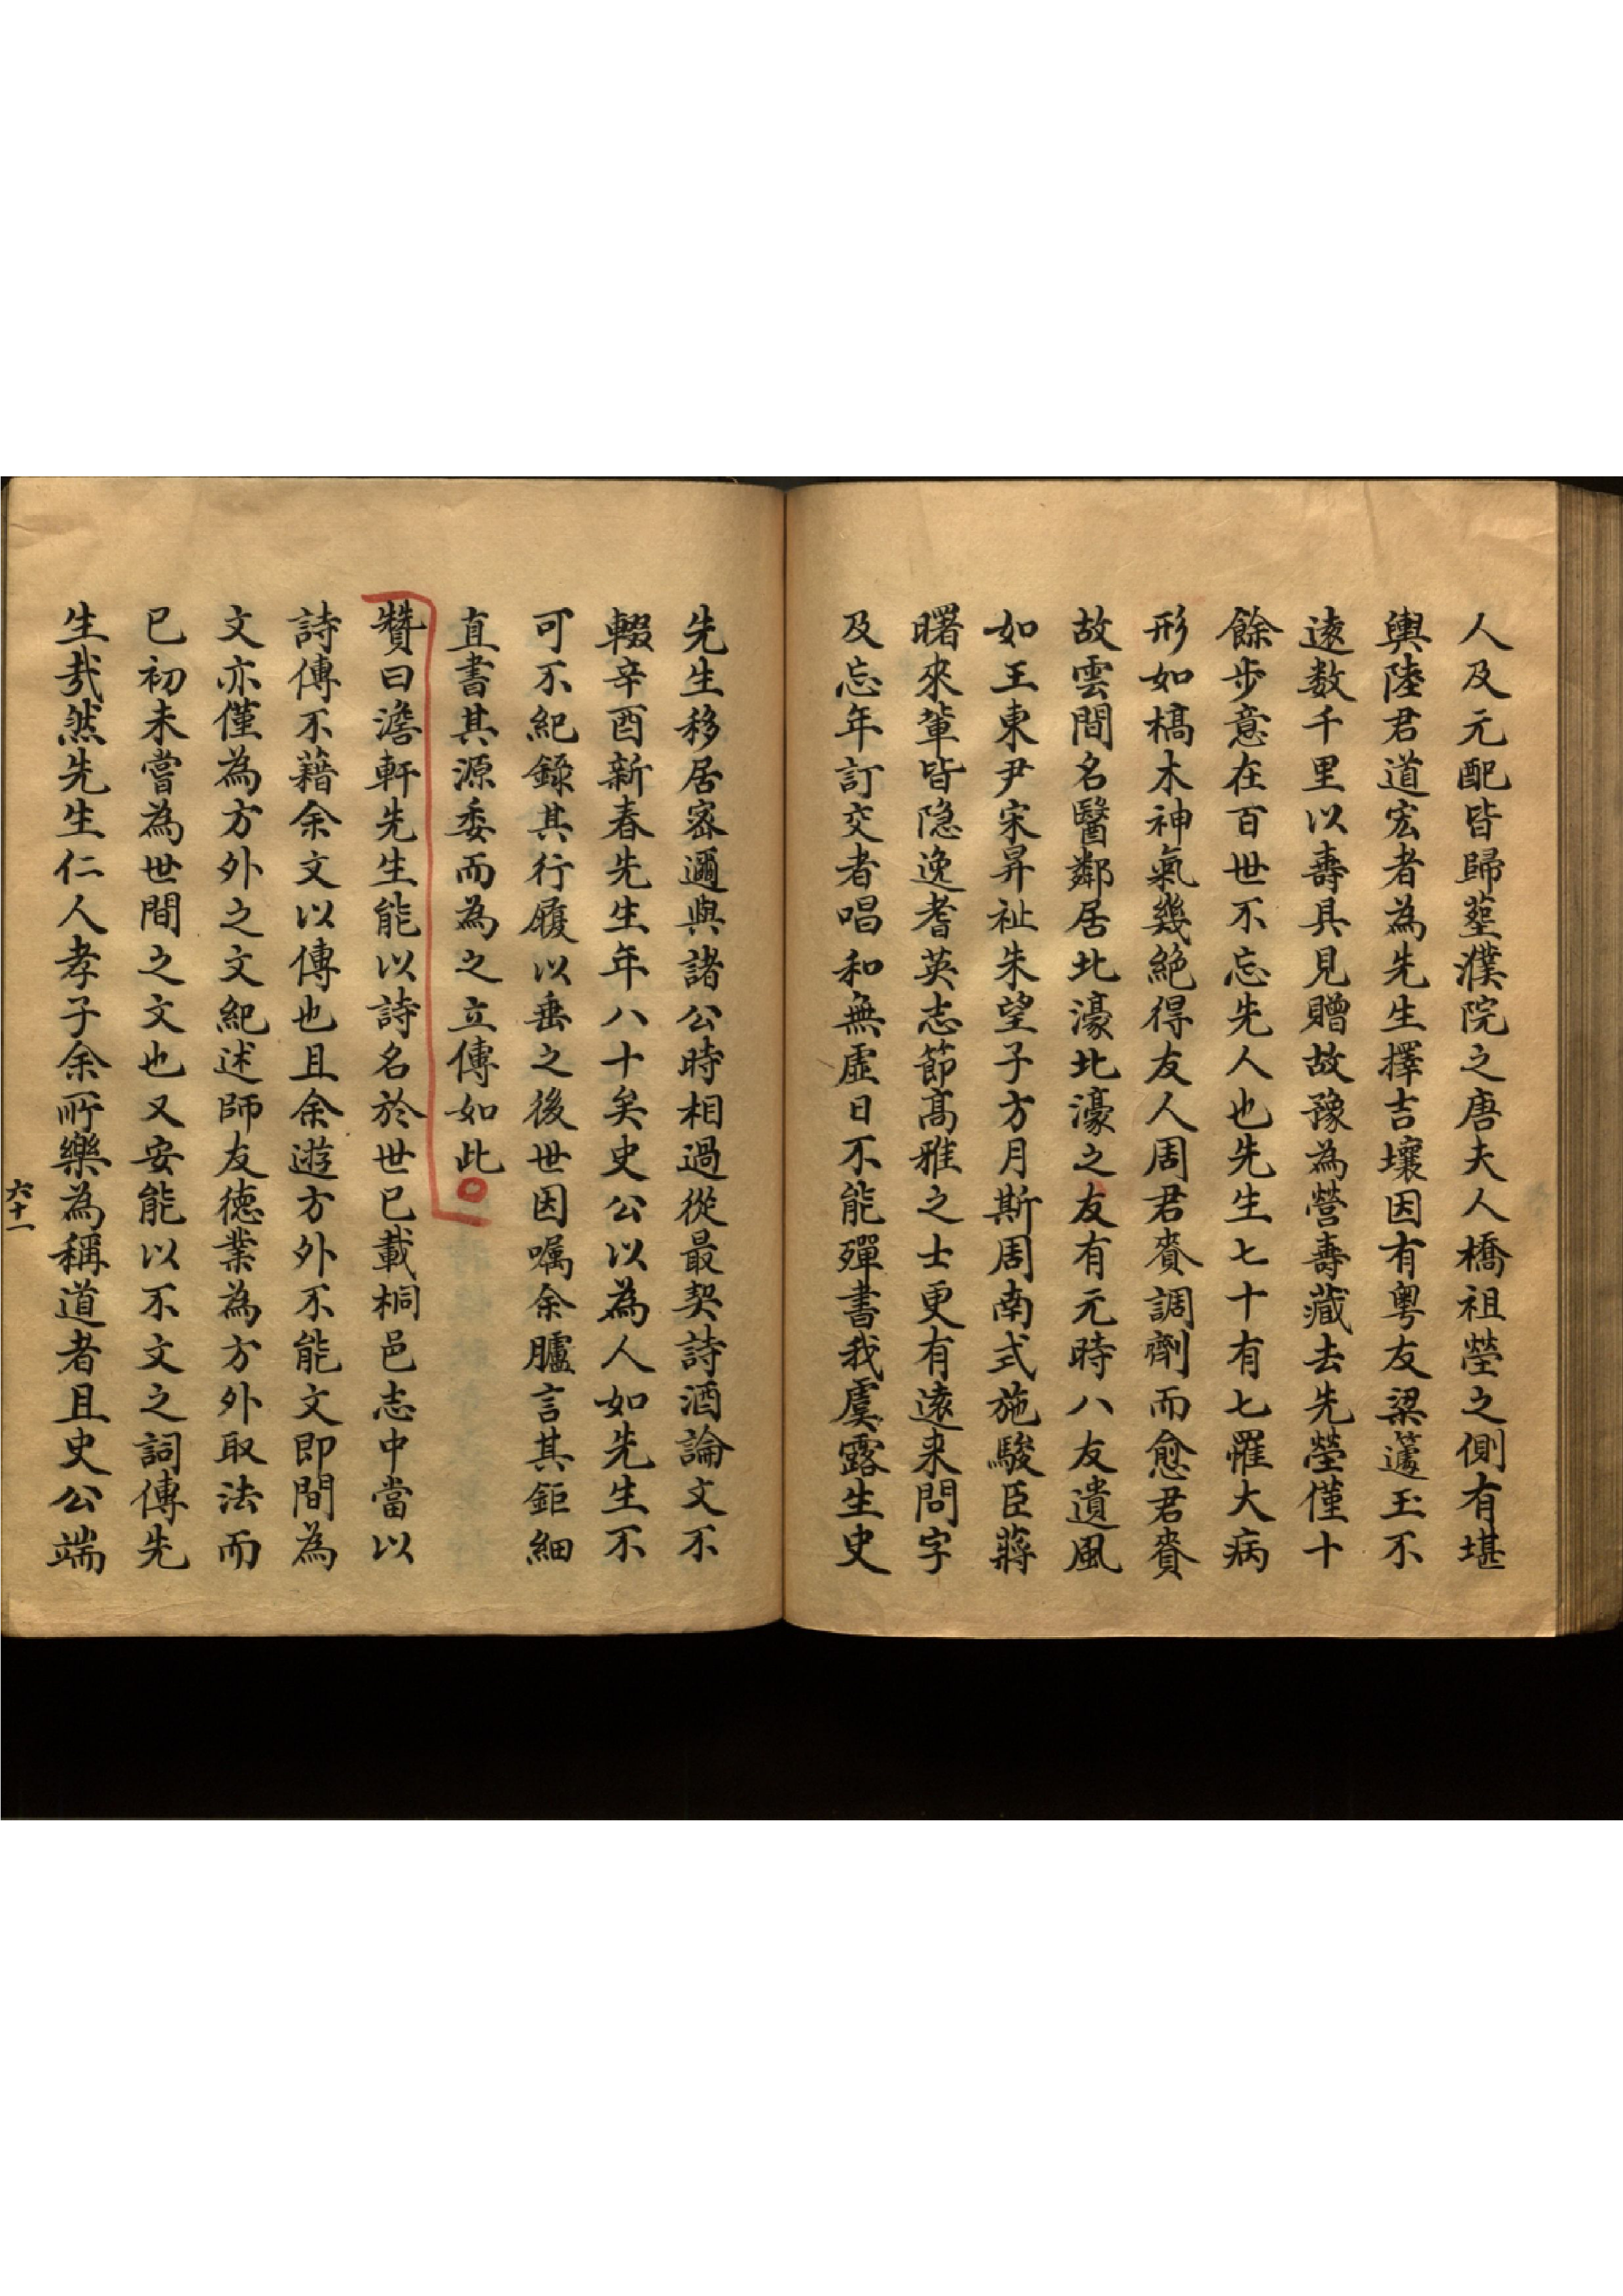 人及元配皆歸塟濮院之唐夫人橋祖塋之側有堪
輿陸君道宏者為先生擇吉壤因有粤友梁蘧玉不
逺数千里以壽具見贈故豫為營壽藏去先塋僅十
餘步意在百世不忘先人也先生七十有七罹大病
形如槁木神氣幾絶得友人周君賚調劑而愈君賚
故雲間名醫鄰居北濠北濠之友有元時八友遺風
如王東尹宋昇祉朱望子方月斯周南式施駿臣蔣
曙來輩皆隐逸耆英志節髙雅之士更有逺来問字
及忘年訂交者唱和無虛日不能殫書我虞露生史
先生移居宻邇與諸公時相過從最契詩酒論文不
輟辛酉新春先生年八十矣史公以為人如先生不
可不紀錄其行履以垂之後世因嘱余臚言其鉅細
直書其源委而為之立傳如此
贊曰澹軒先生能以詩名於世已載桐邑志中當以
詩傳不藉余文以傳也且余遊方外不能文即間為
文亦僅為方外之文紀述師友德業為方外取法而
已初未嘗為世間之文也又安能以不文之詞傳先
生哉然先生仁人孝子余所樂為稱道者且史公端
六十一